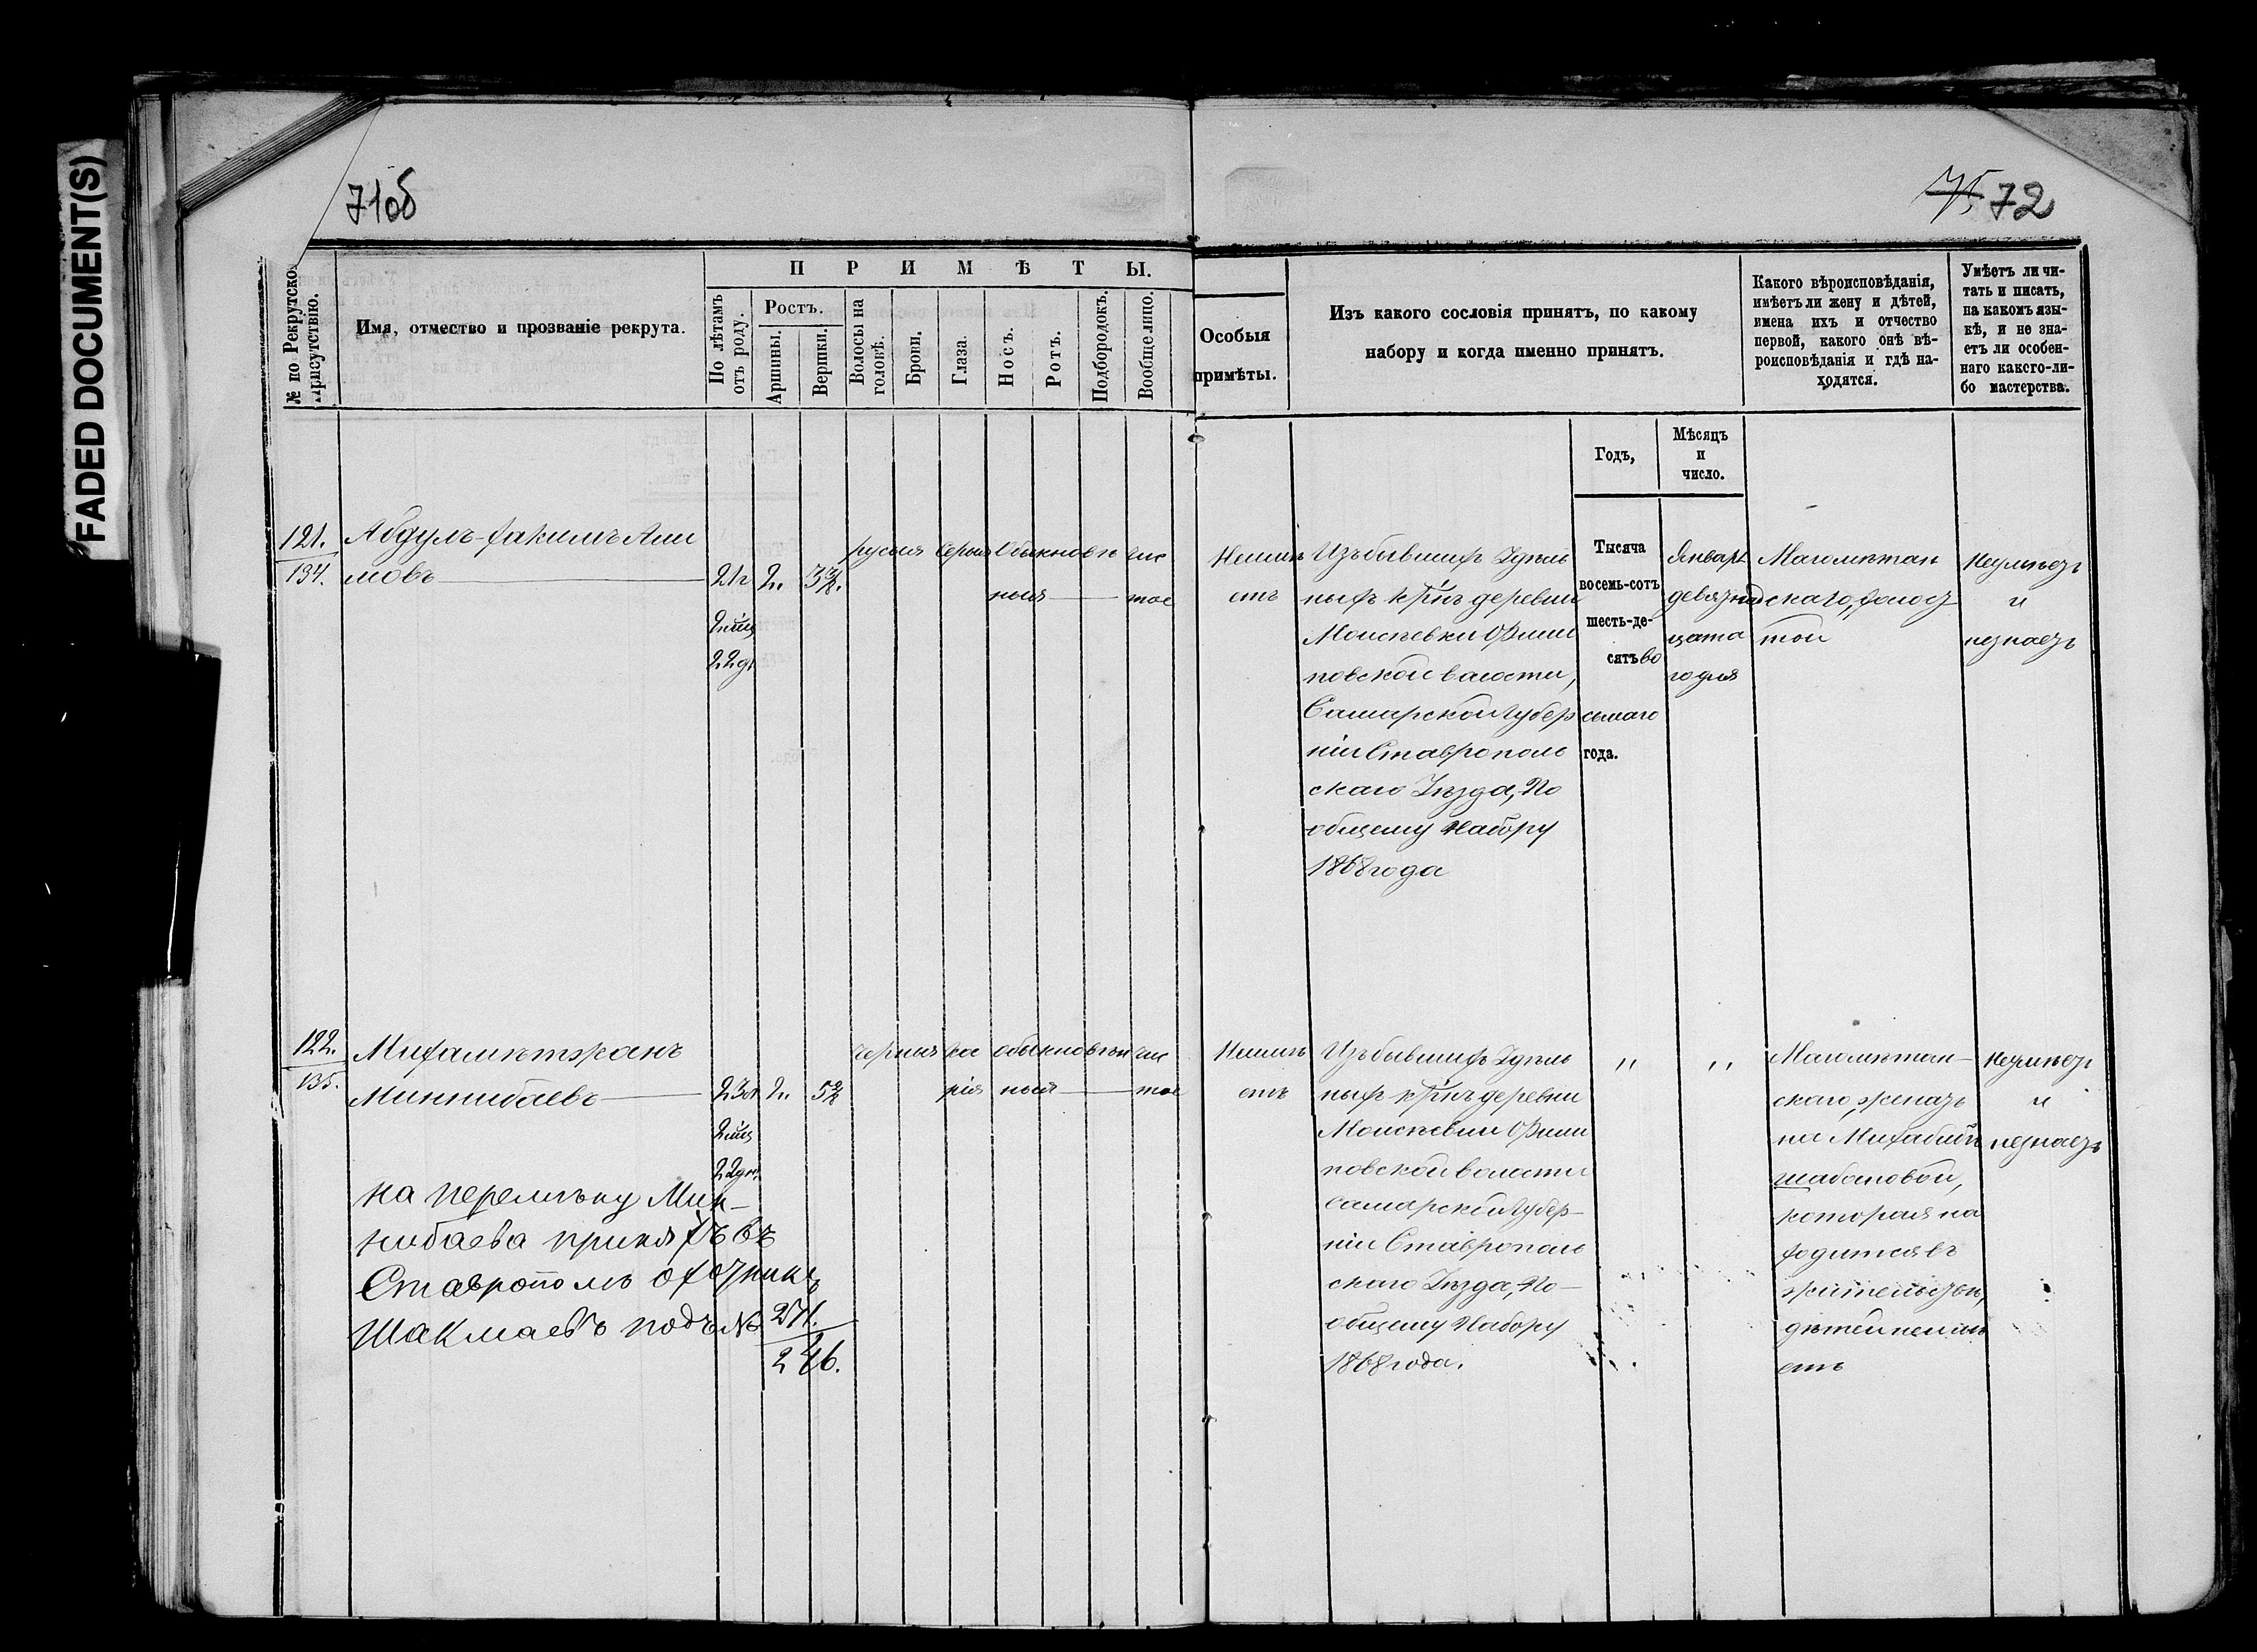 FADED DOCUMENT(S)
71об
75 72
№ по Рекрутско
Присутствію.
Имя, отчество и прозваніе рекрута.
ПРИМѢТЫ.
По лѣтамъ
отъ роду.
Ростъ.
Аршины.
Вершки.
Волосы на
головѣ.
Брови.
Глаза.
Носъ.
Ротъ.
Подбородокъ.
Вообще лицо.
Особыя
примѣты.
Изъ какого сословія принятъ, по какому
набору и когда именно принятъ.
Какого вѣроисповѣданія,
имѣетъ ли жену и дѣтей,
имена ихъ и отчество
первой, какого онѣ вѣ-
роисповѣданія и гдѣ на-
ходятся.
Умѣетъ ли чи-
тать и писать,
на какомъ язы-
кѣ, и не зна-
етъ ли особен-
наго какого-ли-
бо мастерства.
Годъ,
Мѣсяцъ
и
число.
121.
134.
Абдулъ-хакимъ Али
мовъ
21г
2 мѣц
22 дн
2.
3 3/8.
русыя
серыя
Обыкновен
ныя
чис
тое
Неимѣ
етъ
Изъ бывшихъ Удѣль
ныхъ кр҃нъ деревни
Моисѣевки Фили
повской волости,
Самарской Губер
ніи Ставрополь
скаго Уѣзда, По
общему Набору
1868 года
Тысяча
восемь-сотъ
шесть-де-
сятъ во
сьмаго
года.
Январь
девятнад
цата
го дня
Магометан
скаго, холос
той
Неумѣетъ
и
незнаетъ
122.
135.
Мухаметжанъ
Миннибаевъ
23 л
2 мѣц
22 дн.
2.
5 2/8
черныя
ка
рія
обыкновен
ныя
чис
тое
Неимѣ
етъ
Изъ бывшихъ Удѣль
ныхъ кр҃нъ деревни
Моисѣевки Фили
повской волости
Самарской Губер-
ніи Ставрополь
скаго Уѣзда, По-
общему Набору
1868 года.
"
"
Магометан-
скаго, женатъ
на
Шабановой,
которая на
ходится въ
жительстве,
дѣтей неимѣ
етъ
Неумѣетъ
и
незнаетъ
на перемѣну Мин-
нибаева принятъ въ
Ставрополь охотникъ
Шакмаевъ подъ №
271.
246.